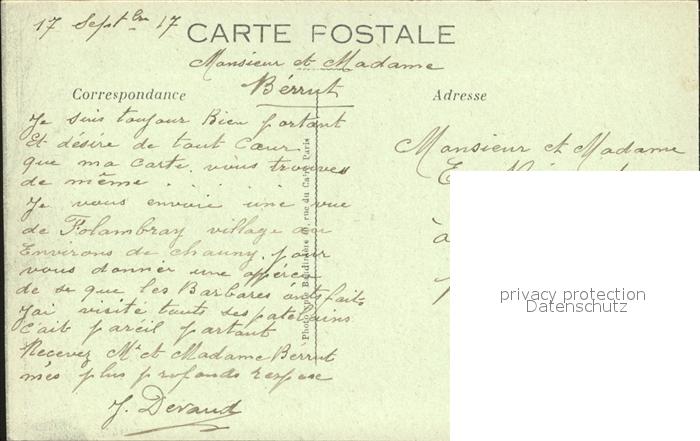 17 Septbre 17
CARTE POSTALE
Monsieur et Madame
Bérrut
Correspondance
Adresse
Je suis toujour Bien portant
Et désire de tout Cœur
que ma carte vous trouves
de même . . . . .
Je vous envoie une vue
de Folambray village au
Environs de chauny pour
vous donner une apérçu
de se que les Barbares onts faits
J'ai visité touts ses patelains
C'ait pareil partout
Recevez Mr et Madame Bérrut
mes plus profonds respese
J. Devaud
Phototypie Baudinière, rue du Caire Paris
Monsieur et Madame
à
privacy protection
Datenschutz